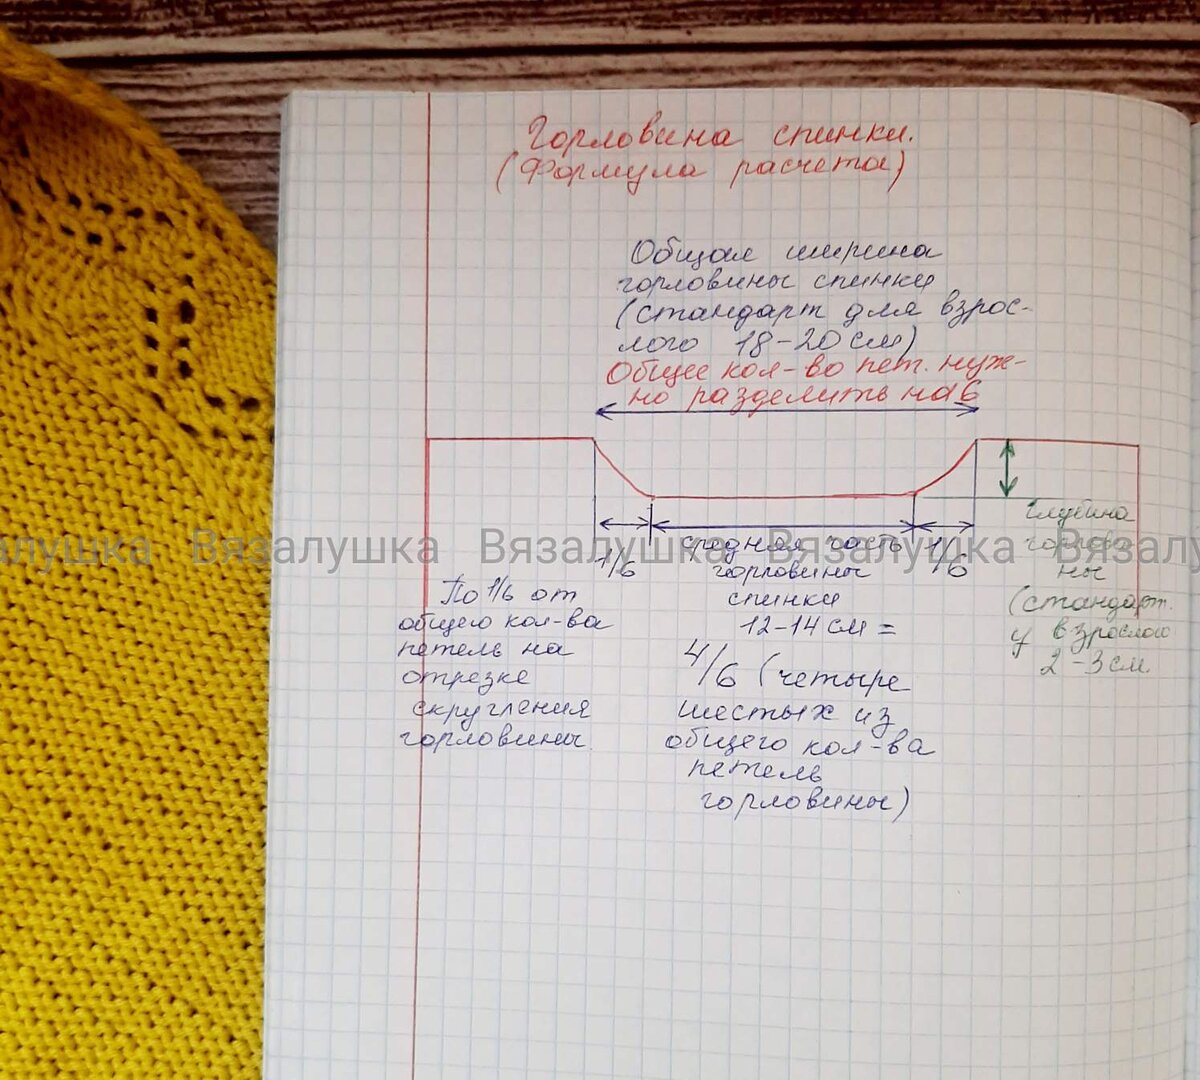 Горловина спинки.
(Формула расчета)
Общая ширина
горловины спинки
(стандарт для взрос-
лого 18-20 см)
Общее кол-во пет. нуж-
но разделить на 6
1/6
По 1/6 от
общего кол-ва
петель на
отрезке
скругления
горловины
средняя часть
горловины
спинки
12-14 см =
4/6 (четыре
шестых из
общего кол-ва
петель
горловины)
1/6
глубина
горлови-
ны
(стандарт.
у взрослого
2-3 см
Вязалушка Вязалушка Вязалушка